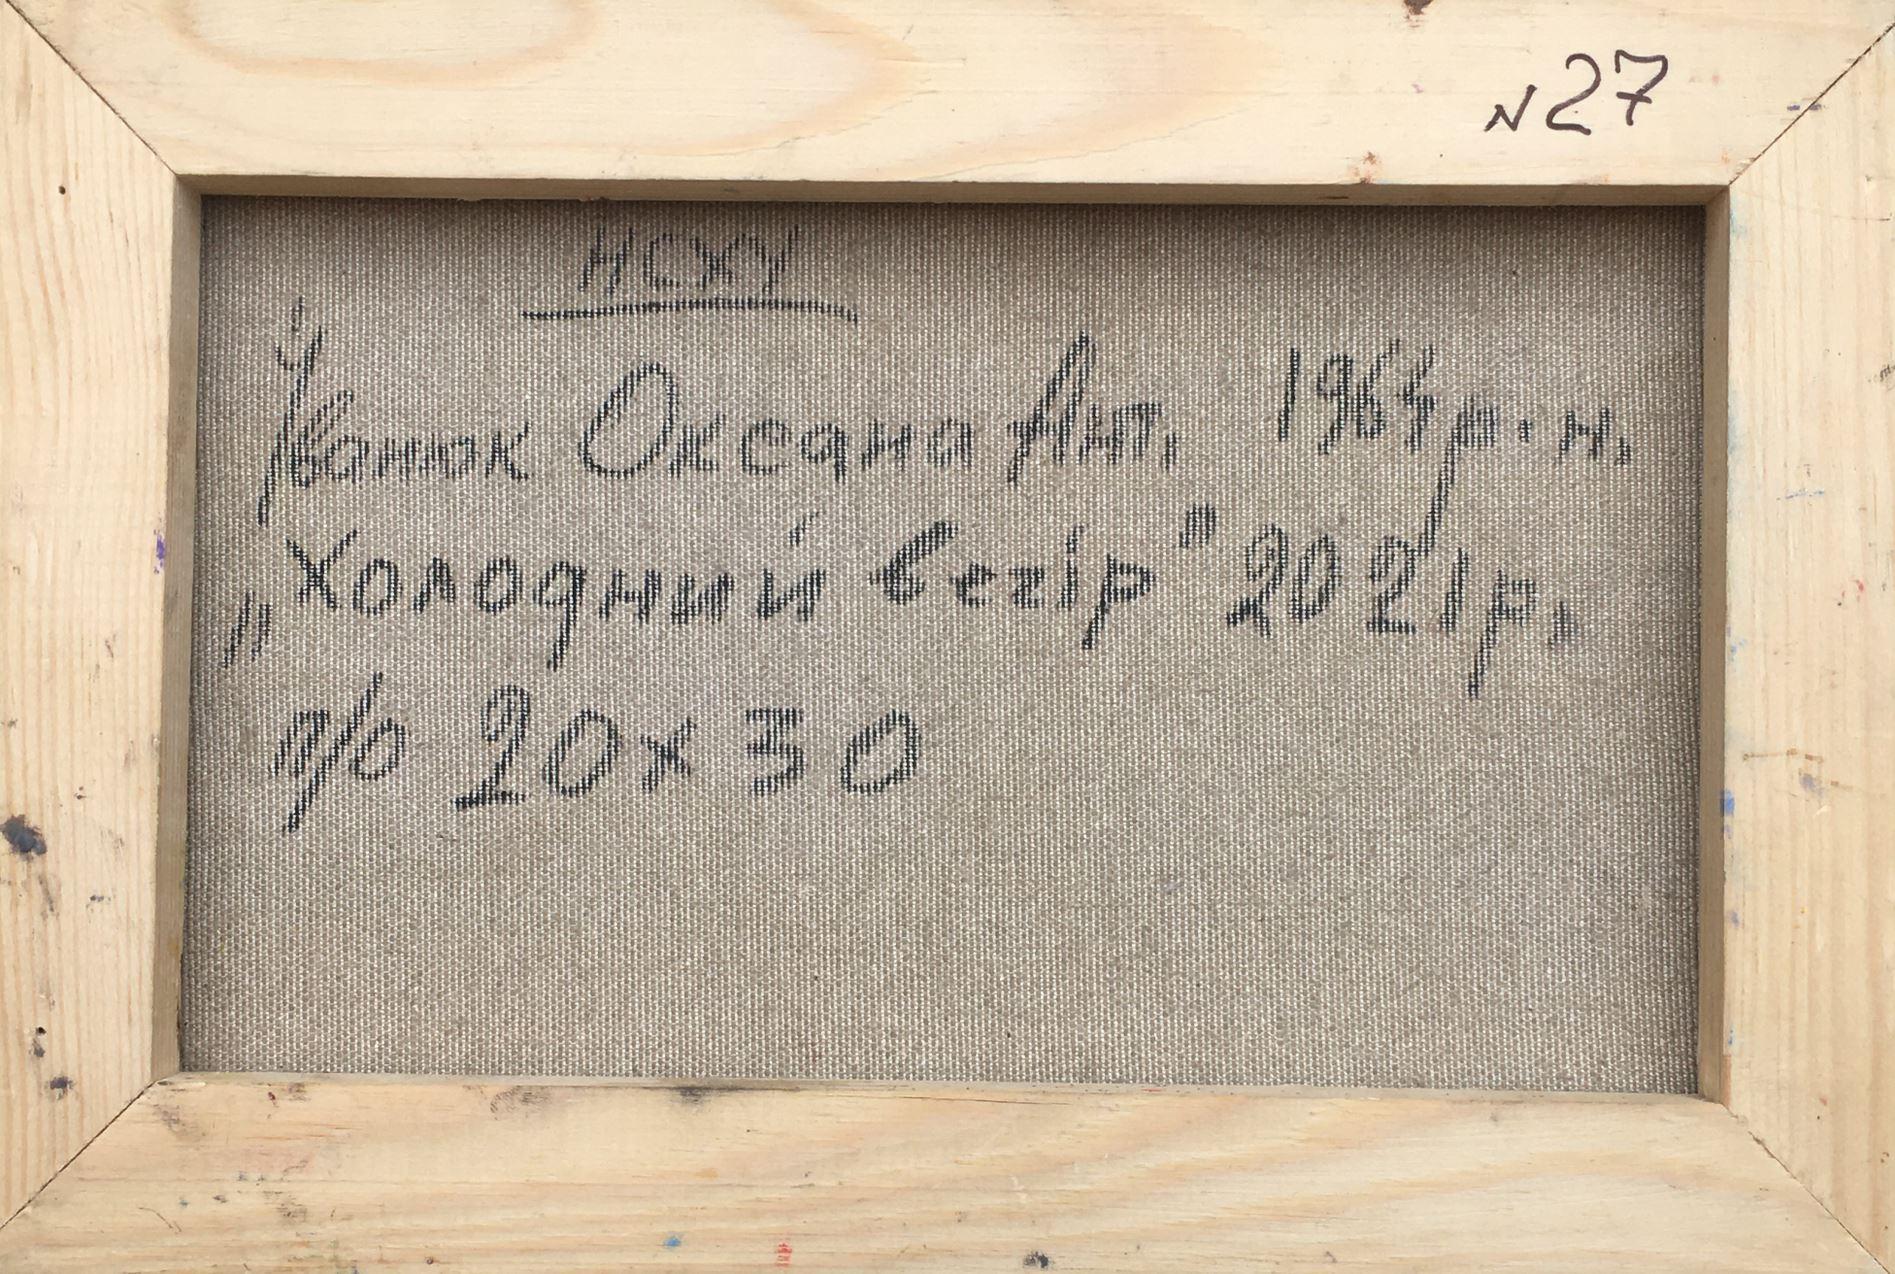 N27
НСХУ
Іванюк Оксана Ант. 1964 р.н.
„Холодний вечір" 2021р.
п/о 20х30